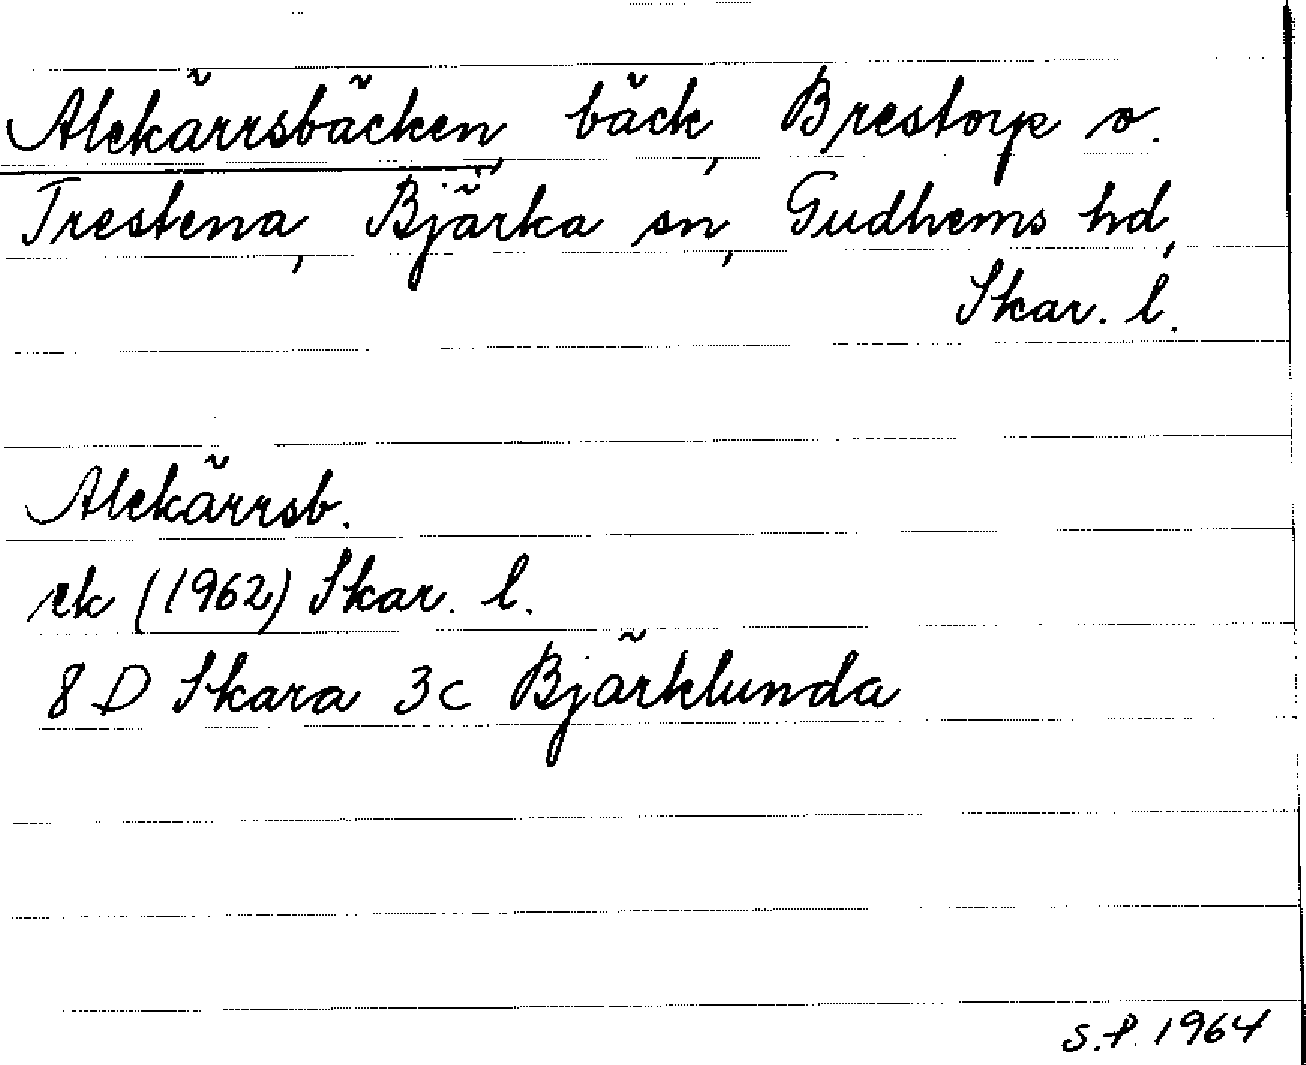 Alekärrsbäcken, bäck, Brestorp o.
Trestena, Bjärka sn, Gudhems hd,
Skar. l.
Alekärrsb.
ek (1962) Skar. l.
8 D Skara 3c Bjärklunda
S.P. 1964